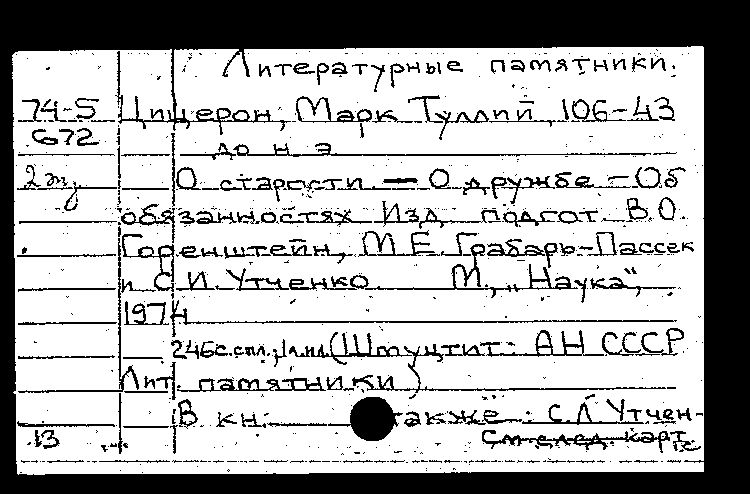 Литературные памятники.
74-5 Цицерон, Марк Туллий, 106-43
G72 до н э
2 экз О старости. — О дружбе — Об
обязанностях Изд. подгот. В.О.
Горенштейн, М.Е. Грабарь-Пассек
и С.И. Утченко. М., „Наука",
1974
246с.спл.,1л.ил.(Шмуцтит: АН СССР
Лит. памятники).
В кн: также: С.Л Утчен-
13 См след. карт